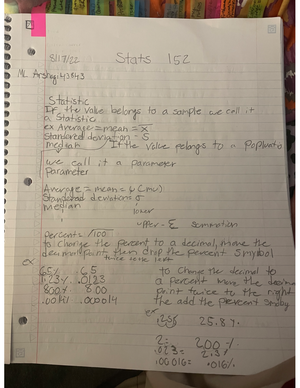 8/17/22 Stats 152
ML Arshag: 43843
Statistic
If, the value belongs to a sample we call it
a Statistic
ex Average = mean = x̄
Standered deviation - S
median If the value belongs to a
we call it a parameter
parameter
Average = mean = (mu)
Standered deviation σ
median
lower
upper - Σ summation
percent = /100
to change the percent to a decimal, move the
decimal point then drop the percent symbol
twice to the left
ex
65% 6.5
1.23% .0123
800% 8.00
.0014% .000014
to change the decimal to
a percent move the decimal
point twice to the right
the add the percent
ex
.258 25.8%
2= 200%
.023= 2.3%
.00016= .016%